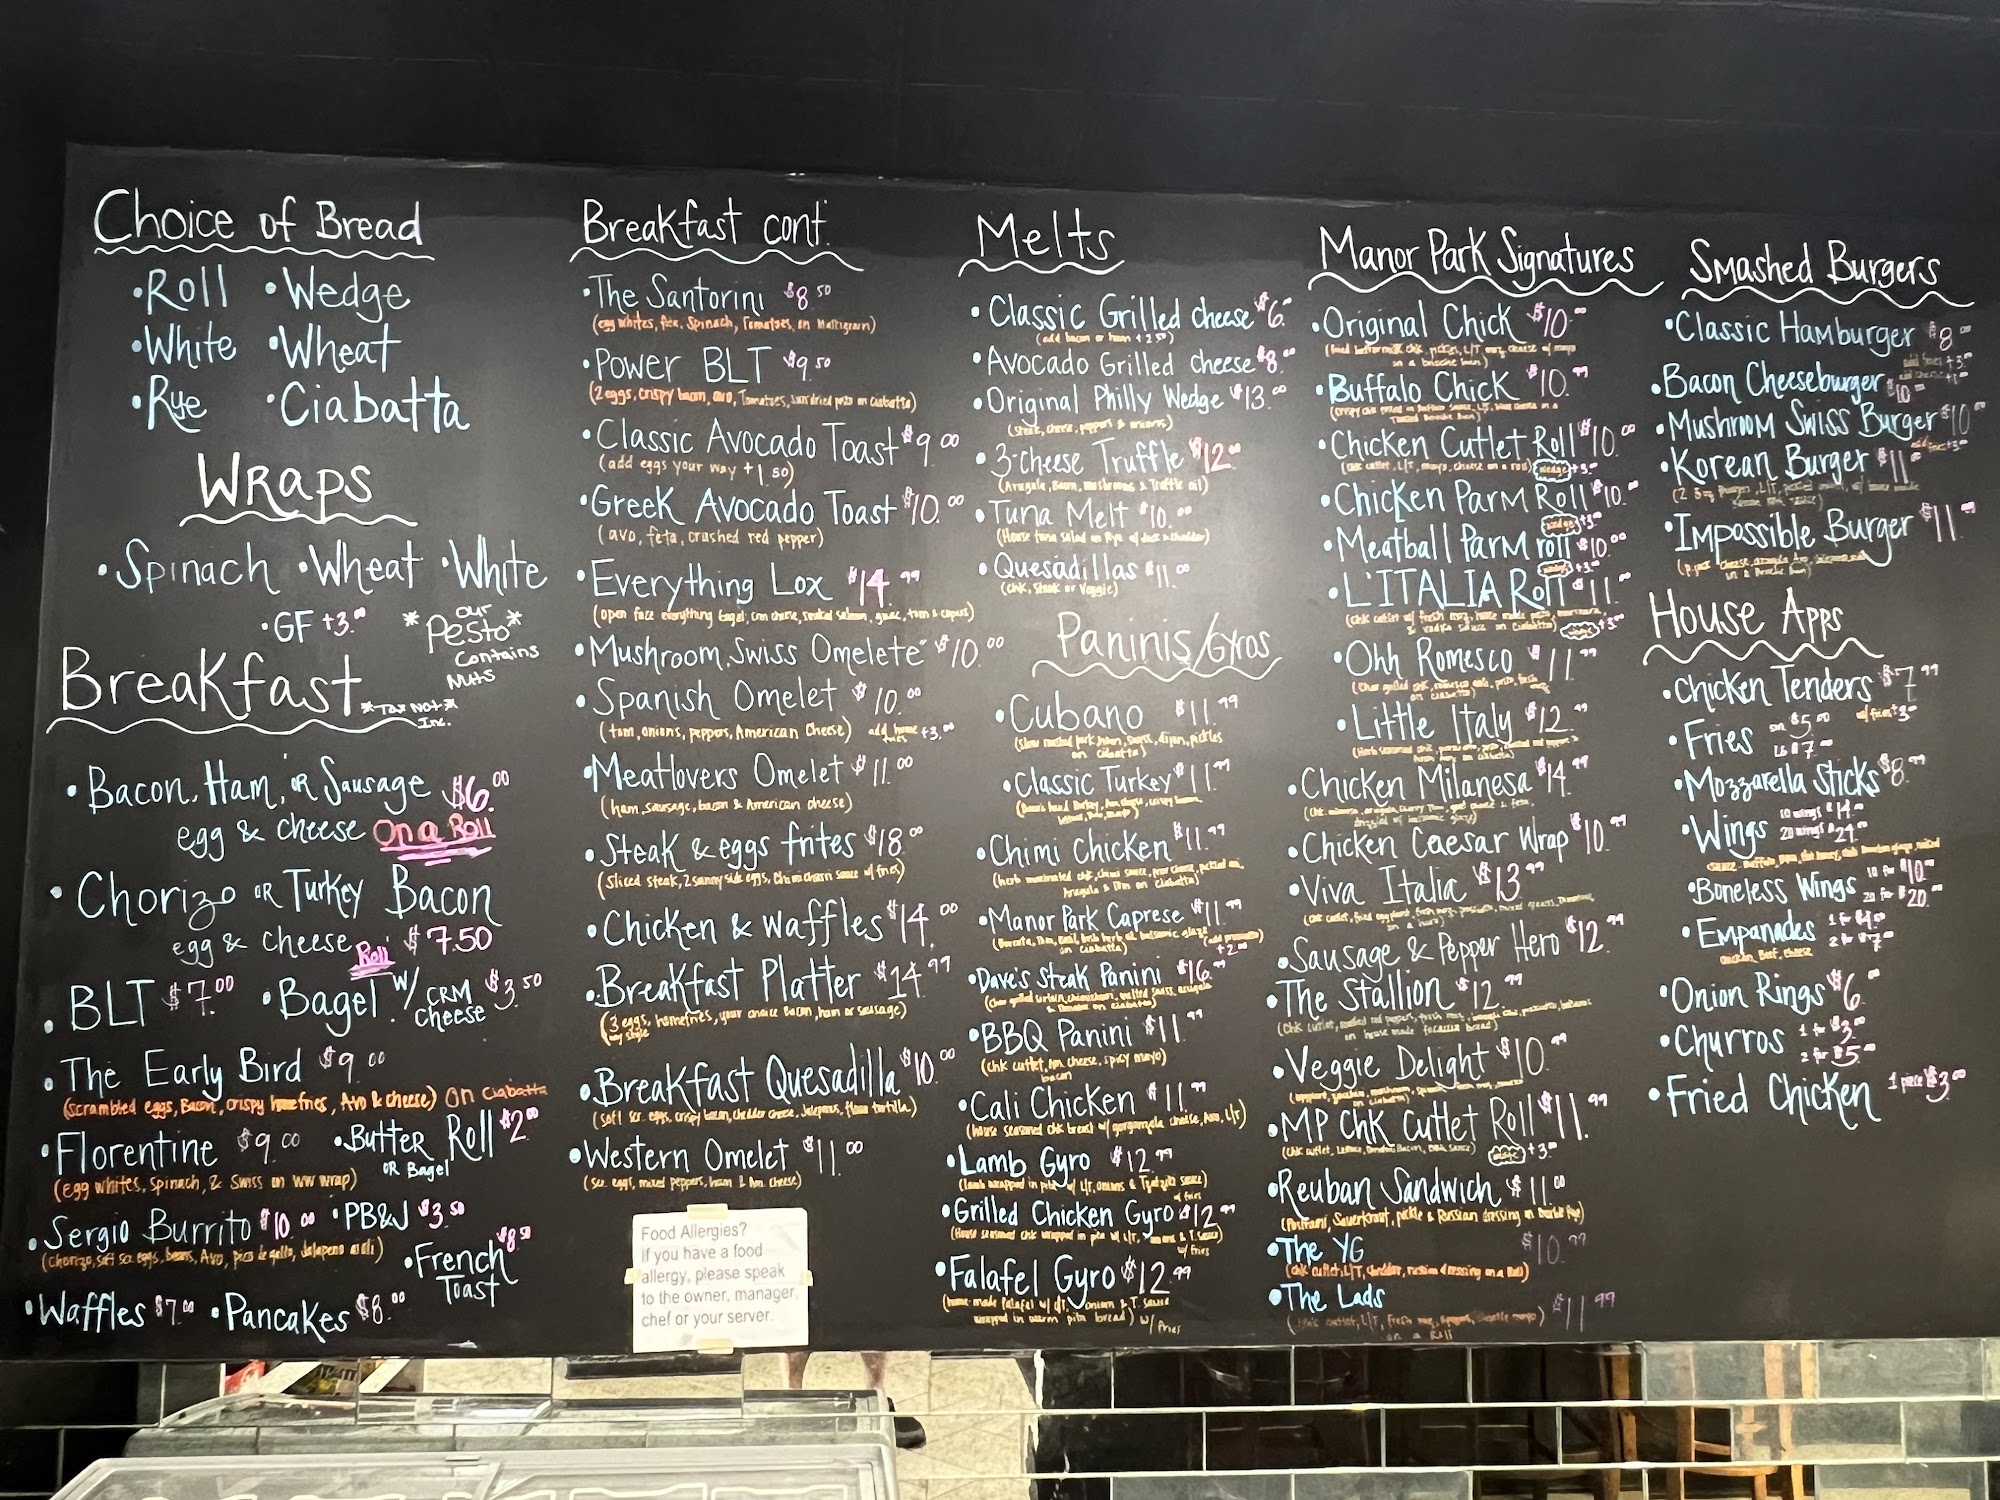 Choice of Bread
•Roll •Wedge
•White •Wheat
•Rye •Ciabatta
Wraps
•Spinach •Wheat •White
•GF +3.00
*our Pesto*
Contains
Nuts
Breakfast
*Tax Not*
Inc.
•Bacon, Ham, or Sausage $6.00
egg & cheese On a Roll
•Chorizo or Turkey Bacon
egg & cheese Roll $7.50
•BLT $7.00 •Bagel w/ CRM Cheese $3.50
•The Early Bird $9.00
(scrambled eggs, Bacon, crispy homefries, Avo & cheese) On Ciabatta
•Florentine $9.00 •Butter Roll $2.00
or Bagel
(egg whites, spinach, & Swiss on ww wrap)
•Sergio Burrito $10.00 •PB&J $3.50
(chorizo, soft sc. eggs, beans, Avo, pico de gallo, Jalapeno aioli)
•French Toast $8.50
•Waffles $7.00 •Pancakes $8.00
Breakfast cont.
•The Santorini $8.50
(egg whites, feta, Spinach, Tomatoes, on Multigrain)
•Power BLT $9.50
(2 eggs, crispy bacon, avo, Tomatoes, sun dried pesto on ciabatta)
•Classic Avocado Toast $9.00
(add eggs your way +1.50)
•Greek Avocado Toast $10.00
(avo, feta, crushed red pepper)
•Everything Lox $14.99
(open face everything bagel, crm cheese, smoked salmon, , tom & capers)
•Mushroom, Swiss Omelete $10.00
•Spanish Omelet $10.00
(tom, onions, peppers, American Cheese) add home fries +3.00
•Meatlovers Omelet $11.00
(ham, sausage, bacon & American cheese)
•Steak & eggs frites $18.00
(Sliced steak, 2 sunny side eggs, Chimichurri sauce w/ fries)
•Chicken & waffles $14.00
•Breakfast Platter $14.99
(3 eggs, homefries, your choice bacon, ham or sausage)
any style
•Breakfast Quesadilla $10.00
(soft scr. eggs, crispy bacon, cheddar cheese, Jalapenos, flour tortilla)
•Western Omelet $11.00
(scr. eggs, mixed peppers, ham & Am. cheese)
Food Allergies?
If you have a food
allergy, please speak
to the owner, manager,
chef or your server.
Melts
•Classic Grilled cheese $6.00
(add bacon or ham +2.50)
•Avocado Grilled cheese $8.00
•Original Philly Wedge $13.00
(Steak, cheese, peppers & onions)
•3-cheese Truffle $12.00
(Arugula, Bacon, mushrooms & Truffle oil)
•Tuna Melt $10.00
(House tuna salad on Rye w/ Jack & cheddar)
•Quesadillas $11.00
(chk, Steak or Veggie)
Paninis/Gyros
•Cubano $11.99
(slow roasted pork, ham, swiss, dijon, pickles
on ciabatta)
•Classic Turkey $11.99
•Chimi Chicken $11.99
(herb marinated chk, chimi sauce, pepper cheese, pickled oni,
Arugula & Tom on ciabatta)
•Manor Park Caprese $11.99
(add prosciutto)
+2.00
on ciabatta)
•Dave's Steak Panini $16.99
•BBQ Panini $11.99
(chk cutlet, Am. cheese, spicy mayo)
bacon
•Cali Chicken $11.99
(house seasoned chk breast w/ gorgonzola cheese, Avo, L/T)
•Lamb Gyro $12.99
(lamb wrapped in pita w/ L/T, onions & Tzatziki sauce)
w/ fries
•Grilled Chicken Gyro $12.99
(House seasoned chk wrapped in pita w/ L/T, onions & T. sauce)
w/ fries
•Falafel Gyro $12.99
(home-made falafel w/ L/T. onion & T. sauce
wrapped in warm pita bread) w/ fries
Manor Park Signatures
•Original Chick $10.00
(fried buttermilk chk, pickles, L/T, cheese w/ mayo
on a brioche bun)
•Buffalo Chick $10.99
•Chicken Cutlet Roll $10.00
(chk cutlet, L/T, mayo, cheese on a roll) wedge +3.00
•Chicken Parm Roll $10.00
wedge +3.00
•Meatball Parm roll $10.00
wedge +3.00
•L'ITALIA Roll $11.00
(chk cutlet w/ fresh moz, house made pesto,
& vodka sauce on ciabatta) wedge +3.00
•Ohh Romesco $11.99
on ciabatta)
•Little Italy $12.99
•Chicken Milanesa $14.99
•Chicken Caesar Wrap $10.99
•Viva Italia $13.99
•Sausage & Pepper Hero $12.99
•The Stallion $12.99
on house made focaccia bread)
•Veggie Delight $10.99
•MP Chk Cutlet Roll $11.99
(chk cutlet, Lettuce, Bacon, BBQ sauce) wedge +3.00
•Reuban Sandwich $11.00
(Pastrami, Sauerkraut, pickle & Russian dressing on Rye)
•The YG $10.99
(chk cutlet, L/T, cheddar, russian dressing on a Roll)
•The Lads $11.99
on a Roll
Smashed Burgers
•Classic Hamburger $8.00
add fries +3.00
add cheese +1.00
•Bacon Cheeseburger $10.00
•Mushroom Swiss Burger $10
add fries +3.00
•Korean Burger $11.00
•Impossible Burger $11.99
House Apps
•Chicken Tenders $7.99
w/ fries +3.00
•Fries sm $5.00
LG $7.00
•Mozzarella Sticks $8.99
•Wings 10 wings $14.00
20 wings $27.00
•Boneless Wings 10 for $10.00
20 for $20.00
•Empanades 1 for $4.50
2 for $7.00
chicken, Beef, cheese
•Onion Rings $6.00
•Churros 1 for $3.00
2 for $5.00
•Fried Chicken 1 piece $3.00